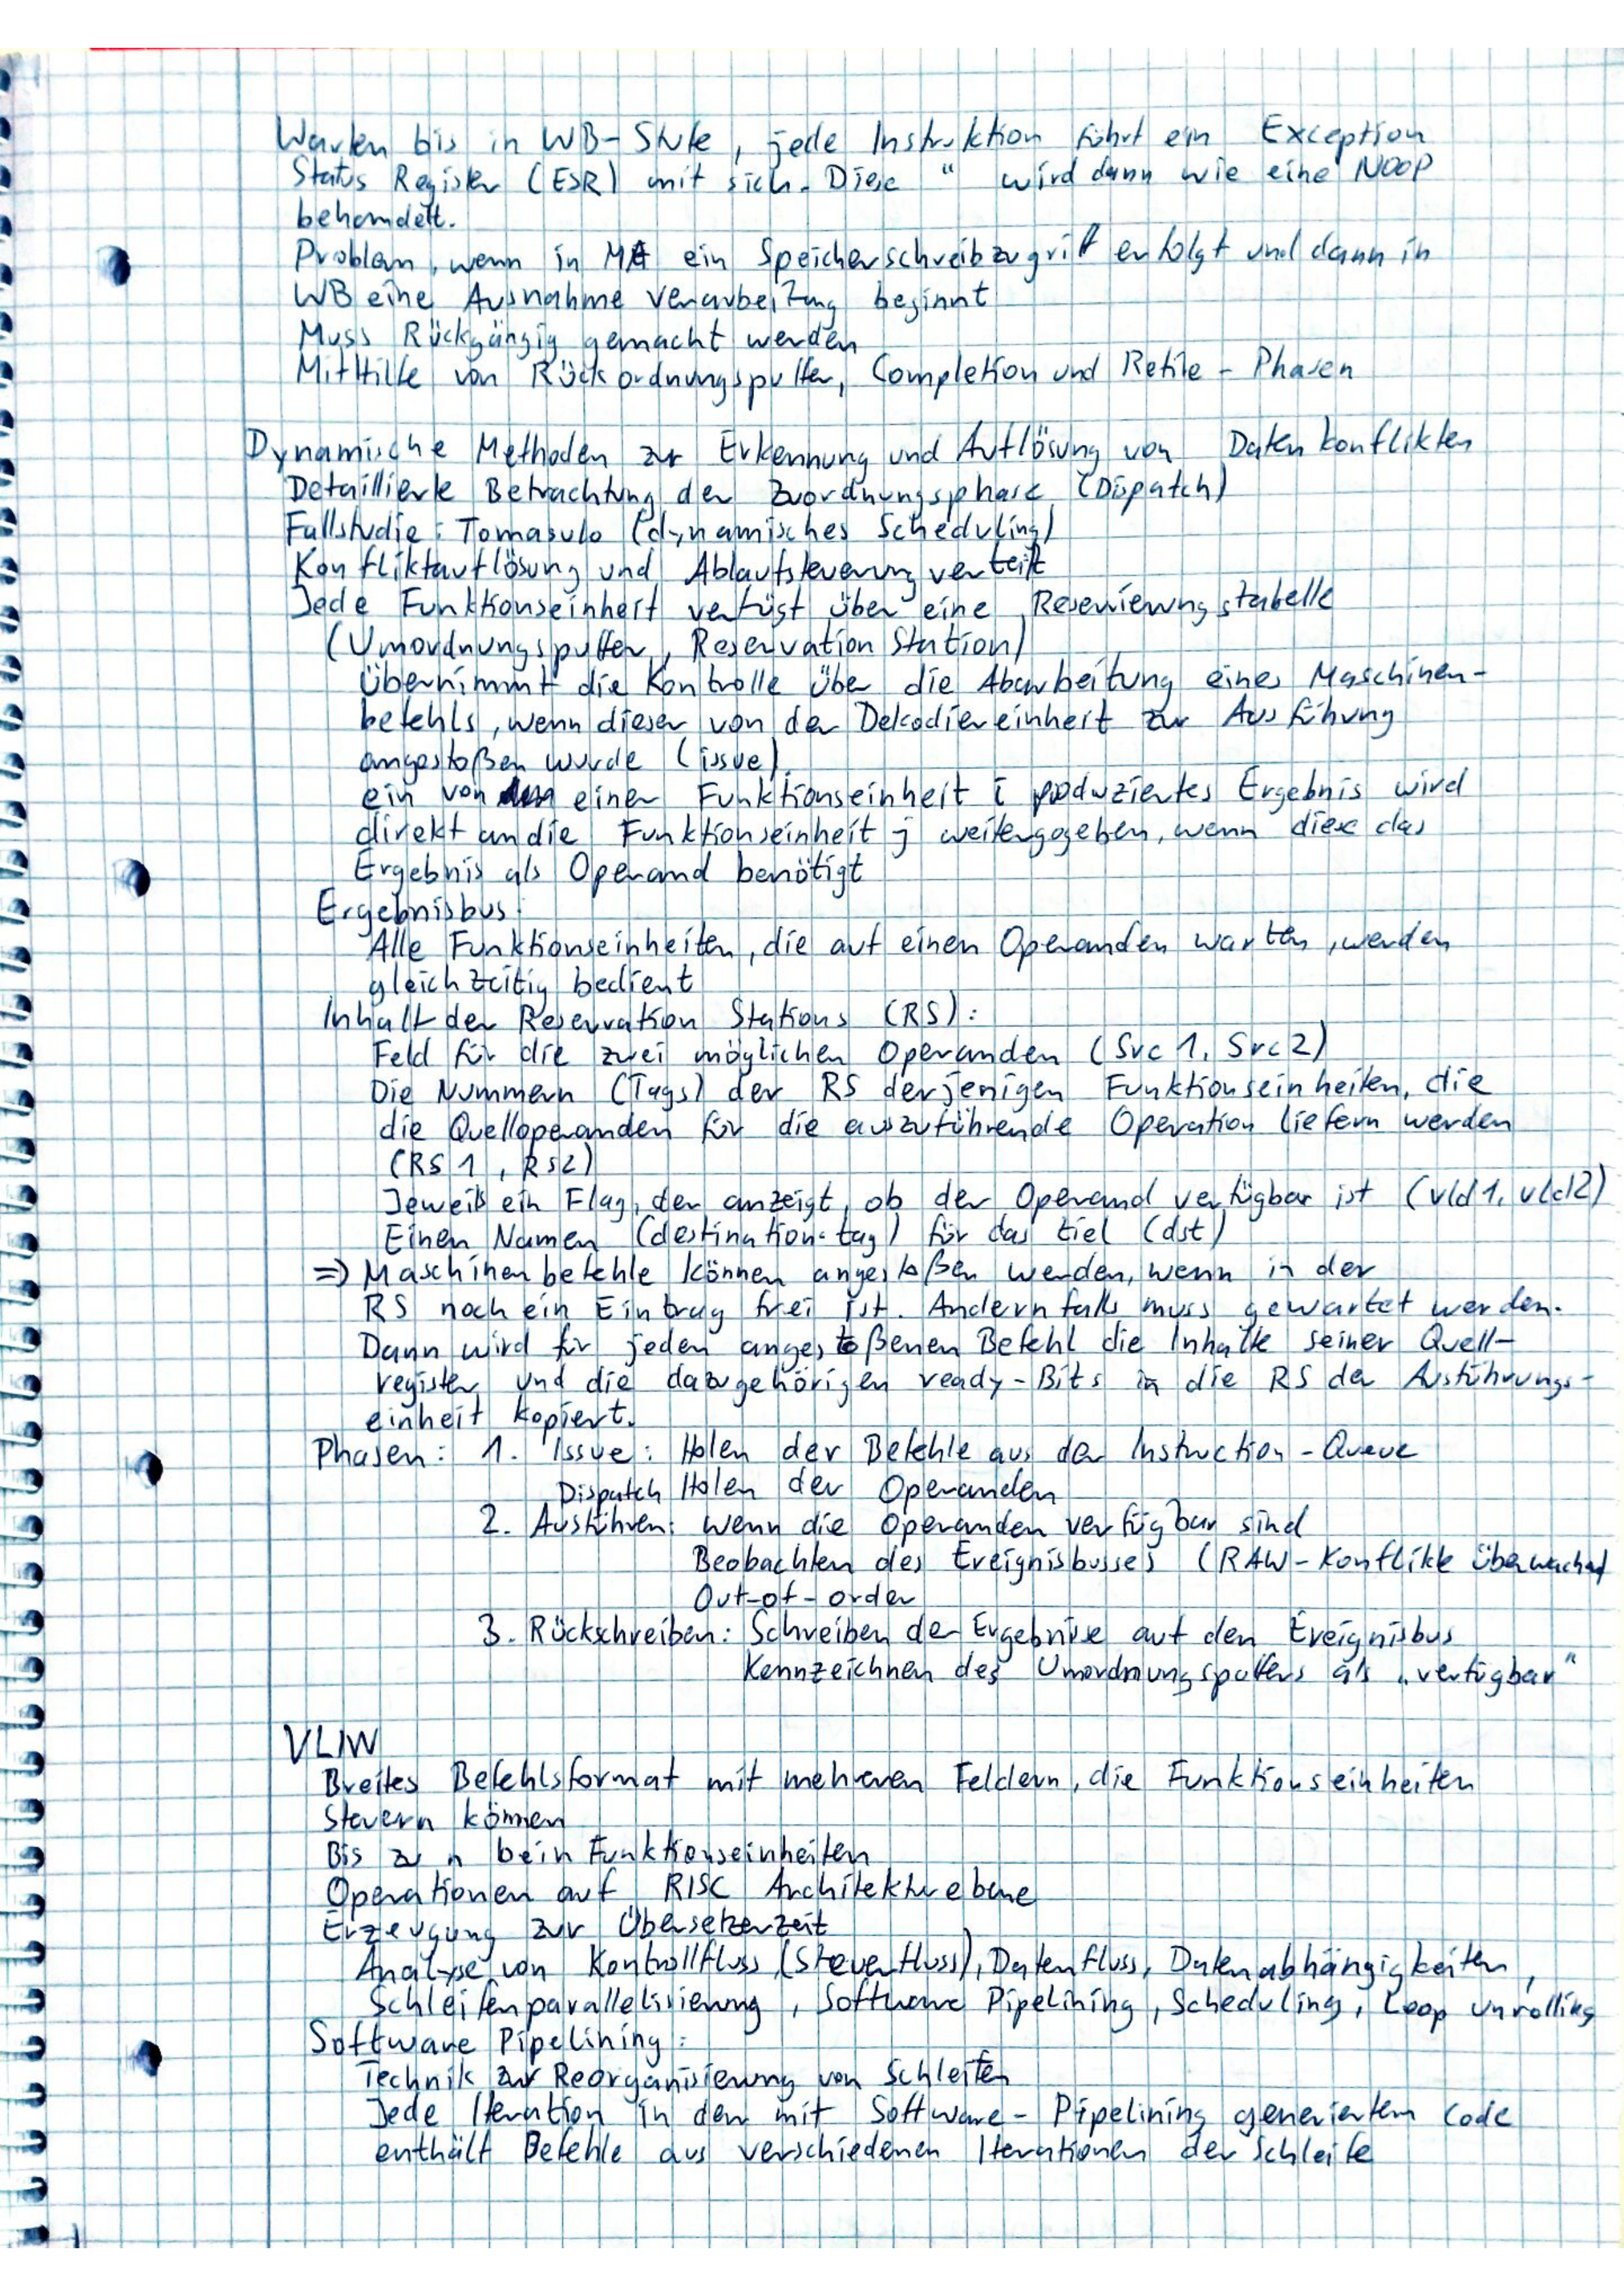 Warten bis in WB-Stufe, jede Instruktion führt ein Exception
Status Register (ESR) mit sich. Diese " wird dann wie eine NOOP
behandelt.
Problem, wenn in MA ein Speicherschreibzugriff erfolgt und dann in
WB eine Ausnahmeverarbeitung beginnt
Muss Rückgängig gemacht werden
Mithilfe von Rückordnungspuffer, Completion und Retire-Phasen
Dynamische Methoden zur Erkennung und Auflösung von Datenkonflikten
Detaillierte Betrachtung der Zuordnungsphase (Dispatch)
Fallstudie: Tomasulo (dynamisches Scheduling)
Konfliktauflösung und Ablaufsteuerung verteilt
Jede Funktionseinheit verfügt über eine Reservierungstabelle
(Umordnungspuffer, Reservation Station)
Übernimmt die Kontrolle über die Abarbeitung eines Maschinen-
befehls, wenn dieser von der Dekodiereinheit zur Ausführung
angestoßen wurde (issue).
ein von einer Funktionseinheit i produziertes Ergebnis wird
direkt an die Funktionseinheit j weitergegeben, wenn diese das
Ergebnis als Operand benötigt
Ergebnisbus:
Alle Funktionseinheiten, die auf einen Operanden warten, werden
gleichzeitig bedient
Inhalt der Reservation Stations (RS):
Feld für die zwei möglichen Operanden (Src 1, Src 2)
Die Nummern (Tags) der RS derjenigen Funktionseinheiten, die
die Quelloperanden für die auszuführende Operation liefern werden
(RS 1, RS2)
Jeweils ein Flag, der anzeigt, ob der Operand verfügbar ist (vld1, vld2)
Einen Namen (destination-tag) für das Ziel (dst)
=> Maschinenbefehle können angestoßen werden, wenn in der
RS noch ein Eintrag frei ist. Andernfalls muss gewartet werden.
Dann wird für jeden angestoßenen Befehl die Inhalte seiner Quell-
register und die dazugehörigen ready-Bits in die RS der Ausführungs-
einheit kopiert.
Phasen: 1. Issue: Holen der Befehle aus der Instruction-Queue
Dispatch Holen der Operanden
2. Ausführen: wenn die Operanden verfügbar sind
Beobachten des Ereignisbusses (RAW-Konflikte überwachen)
Out-of-order
3. Rückschreiben: Schreiben der Ergebnisse auf den Ereignisbus
Kennzeichnen des Umordnungspuffers als „verfügbar“
VLIW
Breites Befehlsformat mit mehreren Feldern, die Funktionseinheiten
steuern können
Bis zu n bein Funktionseinheiten
Operationen auf RISC Architekturebene
Erzeugung zur Übersetzerzeit
Analyse von Kontrollfluss (Steuerfluss), Datenfluss, Datenabhängigkeiten,
Schleifenparallelisierung, Software Pipelining, Scheduling, Loop unrolling
Software Pipelining:
Technik zur Reorganisierung von Schleifen
Jede Iteration in der mit Software-Pipelining generiertem Code
enthält Befehle aus verschiedenen Iterationen der Schleife